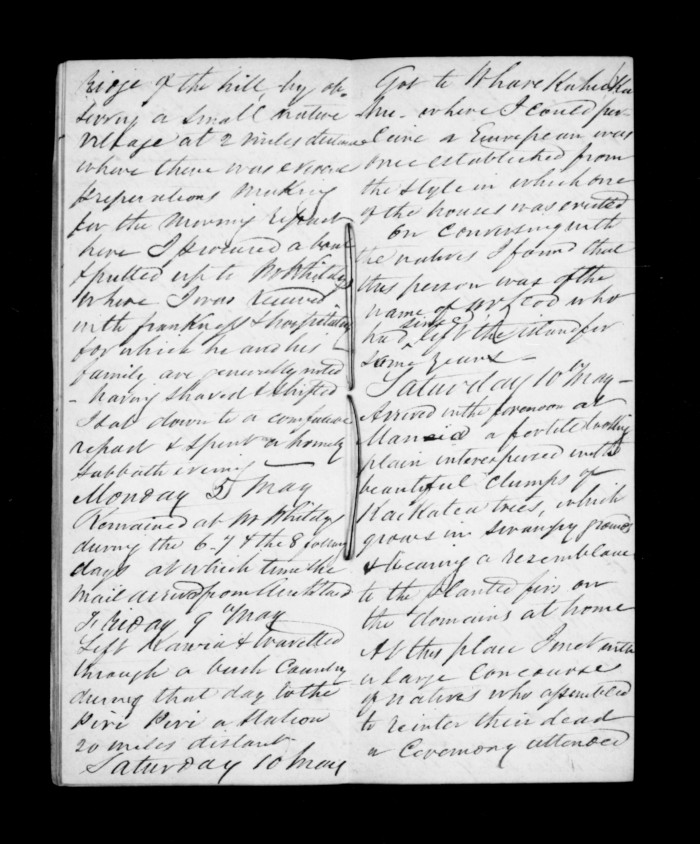 ridge of the hill by ob-
serving a small native
village at 2 miles distance
where there was
preperations making
for the morning repast
here I procured a
& pulled up to Mr Whitelys
where I was received
with frankness & hospitality
for which he and his
family are generally noted
- having shaved & shifted
I sat down to a comfortable
repast & spent a homely
Sabbath evening
Monday 5 May
Remained at Mr Whitelys
during the 6-7 & the 8 following
days at which time the
mail arrived from Auckland
Friday 9th May
Left Kawia & travelled
through a bush Country
during that day to the
Piri Piri a Station
20 miles distant
Saturday 10 May
Got to Whare
where I could per-
ceive a European was
once established from
the style in which one
of the houses was erected
On conversing with
the natives I found that
this person was of the
name of who
had since left the island for
some years -
Saturday 10th May -
Arrived in the forenoon at
a fertile looking
plain interspersed with
beautiful clumps of
Kaikatea trees, which
grows in swampy grounds
& bearing a resemblance
to the planted firs on
the domains at home
At this place I met with
a large Concourse
of natives who assembled
to reinter their dead
a Ceremony attended